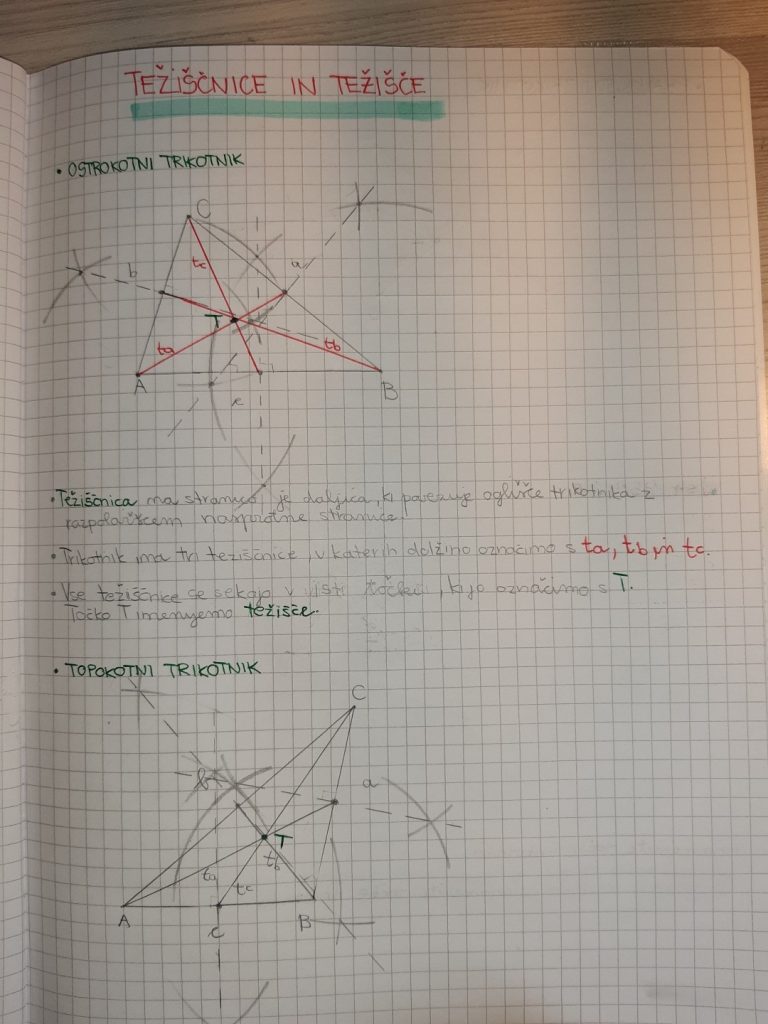 TEŽIŠČNICE IN TEŽIŠČE
• OSTROKOTNI TRIKOTNIK
C
b
tc
a
T
ta
tb
A
c
B
• Težiščnica na stranico je daljica, ki povezuje oglišče trikotnika z
razpoloviščem nasprotne stranice.
• Trikotnik ima tri težiščnice, v katerih dolžino označimo s ta, tb in tc.
• Vse težiščnice se sekajo v isti točki, ki jo označimo s T.
Točko T imenujemo težišče.
• TOPOKOTNI TRIKOTNIK
C
b
a
T
tb
ta
tc
A
B
c